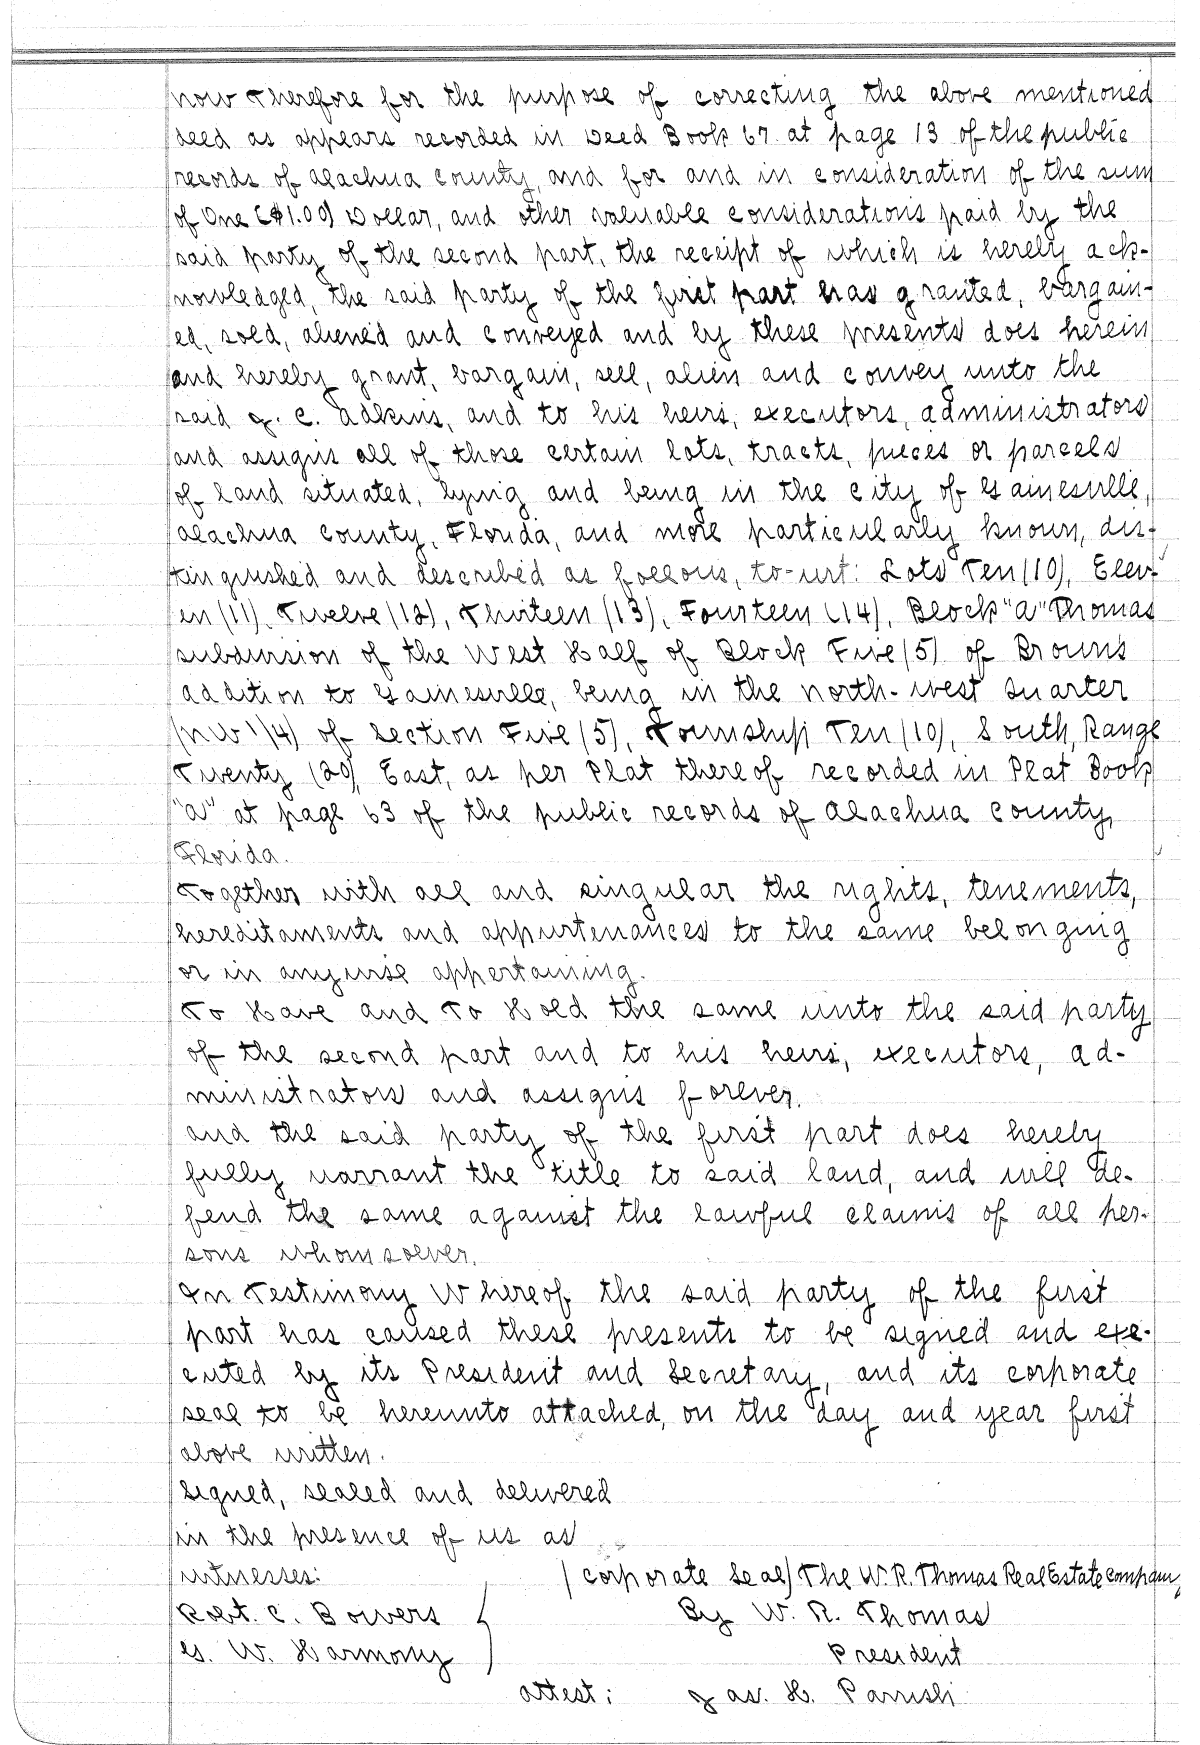 now therefore for the purpose of correcting the above mentioned
deed as appears recorded in Deed Book 67 at page 13 of the public
records of Alachua County, and for and in consideration of the sum
of One ($1.00) Dollar, and other valuable considerations paid by the
said party of the second part, the receipt of which is hereby ack-
nowledged, the said party of the first part has granted, bargain-
ed, sold, aliened and conveyed and by these presents does herein
and hereby grant, bargain, sell, alien and convey unto the
said J. C. Adkins, and to his heirs, executors, administrators
and assigns all of those certain lots, tracts, pieces or parcels
of land situated, lying and being in the city of Gainesville,
Alachua County, Florida, and more particularly known, dis-
tinguished and described as follows, to-wit: Lots Ten (10), Elev-
en (11), Twelve (12), Thirteen (13), Fourteen (14), Block "A" Thomas
subdivision of the West Half of Block Five (5) of Brown's
addition to Gainesville, being in the north-west quarter
(NW 1/4) of Section Five (5), Township Ten (10), South, Range
Twenty (20) East, as per Plat thereof recorded in Plat Book
"A" at page 63 of the public records of Alachua County,
Florida.
Together with all and singular the rights, tenements,
hereditaments and appurtenances to the same belonging
or in anywise appertaining.
To Have and To Hold the same unto the said party
of the second part and to his heirs, executors, ad-
ministrators and assigns forever.
and the said party of the first part does hereby
fully warrant the title to said land, and will de-
fend the same against the lawful claims of all per-
sons whomsoever.
In Testimony Whereof the said party of the first
part has caused these presents to be signed and exe-
cuted by its President and Secretary, and its corporate
seal to be hereunto attached, on the day and year first
above written.
Signed, sealed and delivered
in the presence of us as
witnesses: (Corporate Seal) The W. R. Thomas Real Estate Company
Robt. C. Bowers By W. R. Thomas
G. W. Harmony President
attest: Jas. H. Parrish